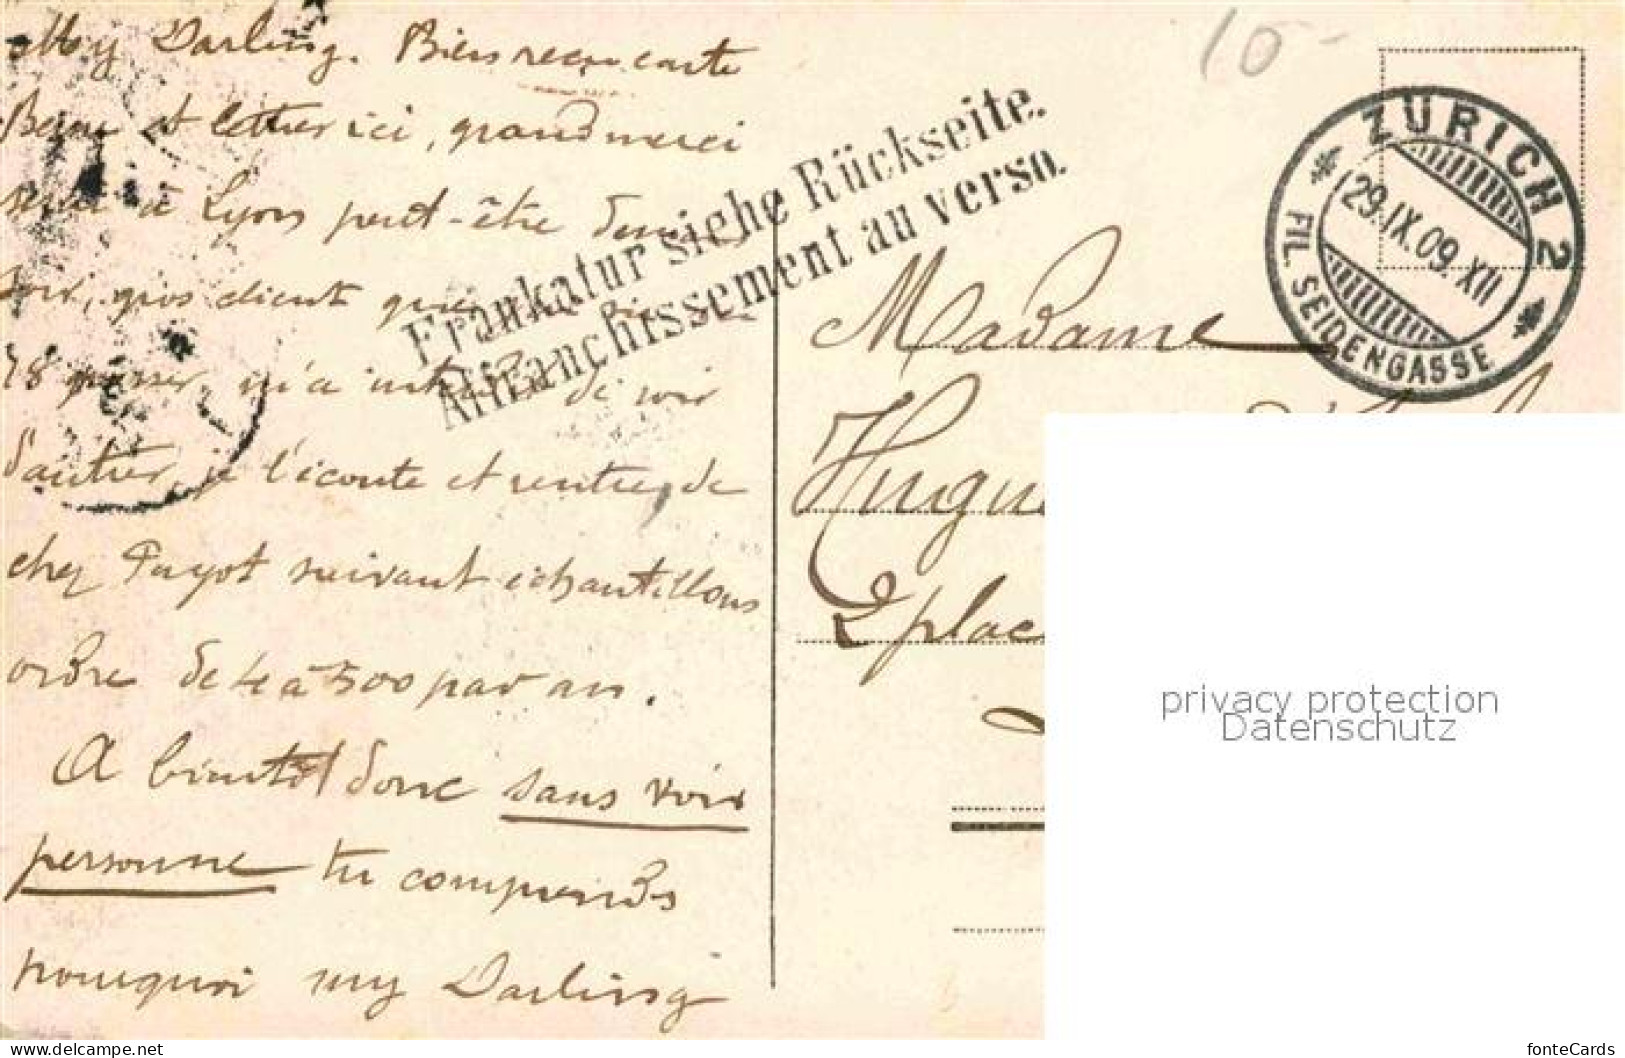 My Darling. Bien reçu carte
Berne et lettre ici, grand merci
à Lyon peut-être
gros client
m'a de voir
d'autres, je l'écoute et rentre, de
chez Payot suivant échantillons
ordre de 4 à 500 par an.
A bientôt donc sans voir
personne tu comprends
pourquoi my Darling
Frankatur siehe Rückseite.
Affranchissement au verso.
10-
ZÜRICH 2
29.IX.09.XII
FIL. SEIDENGASSE
Madame
Hugue
2 place
privacy protection
Datenschutz
https://www.delcampe.net/en_US/collectibles
fonteCards